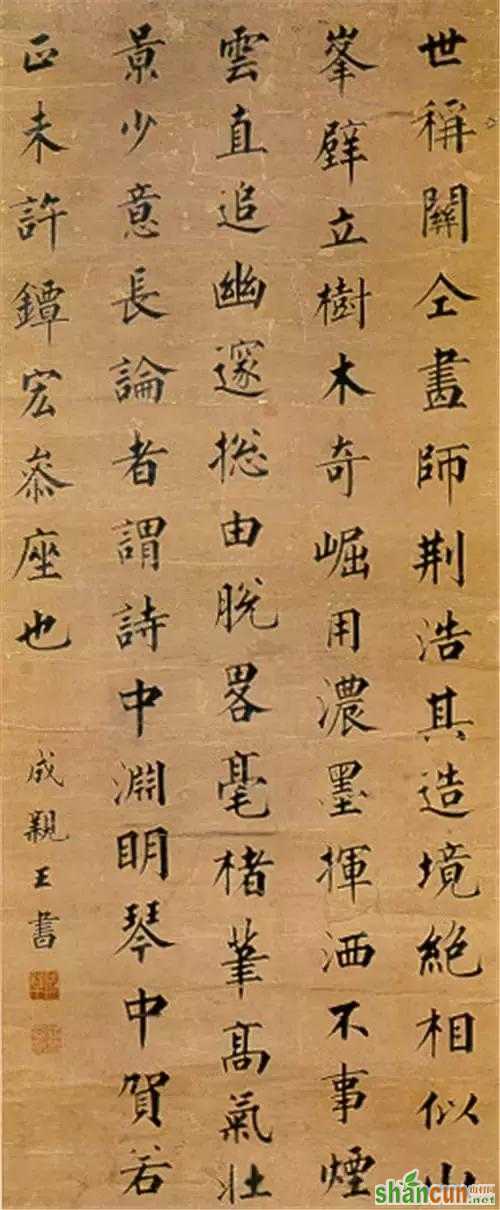 世稱關仝畫師荆浩其造境絶相似山
峯壁立樹木奇崛用濃墨揮洒不事煙
雲直追幽邃揔由脫畧毫楮筆高氣壯
景少意長論者謂詩中淵明琴中賀若
正未許鐔宏叅座也
成親王書
shancun